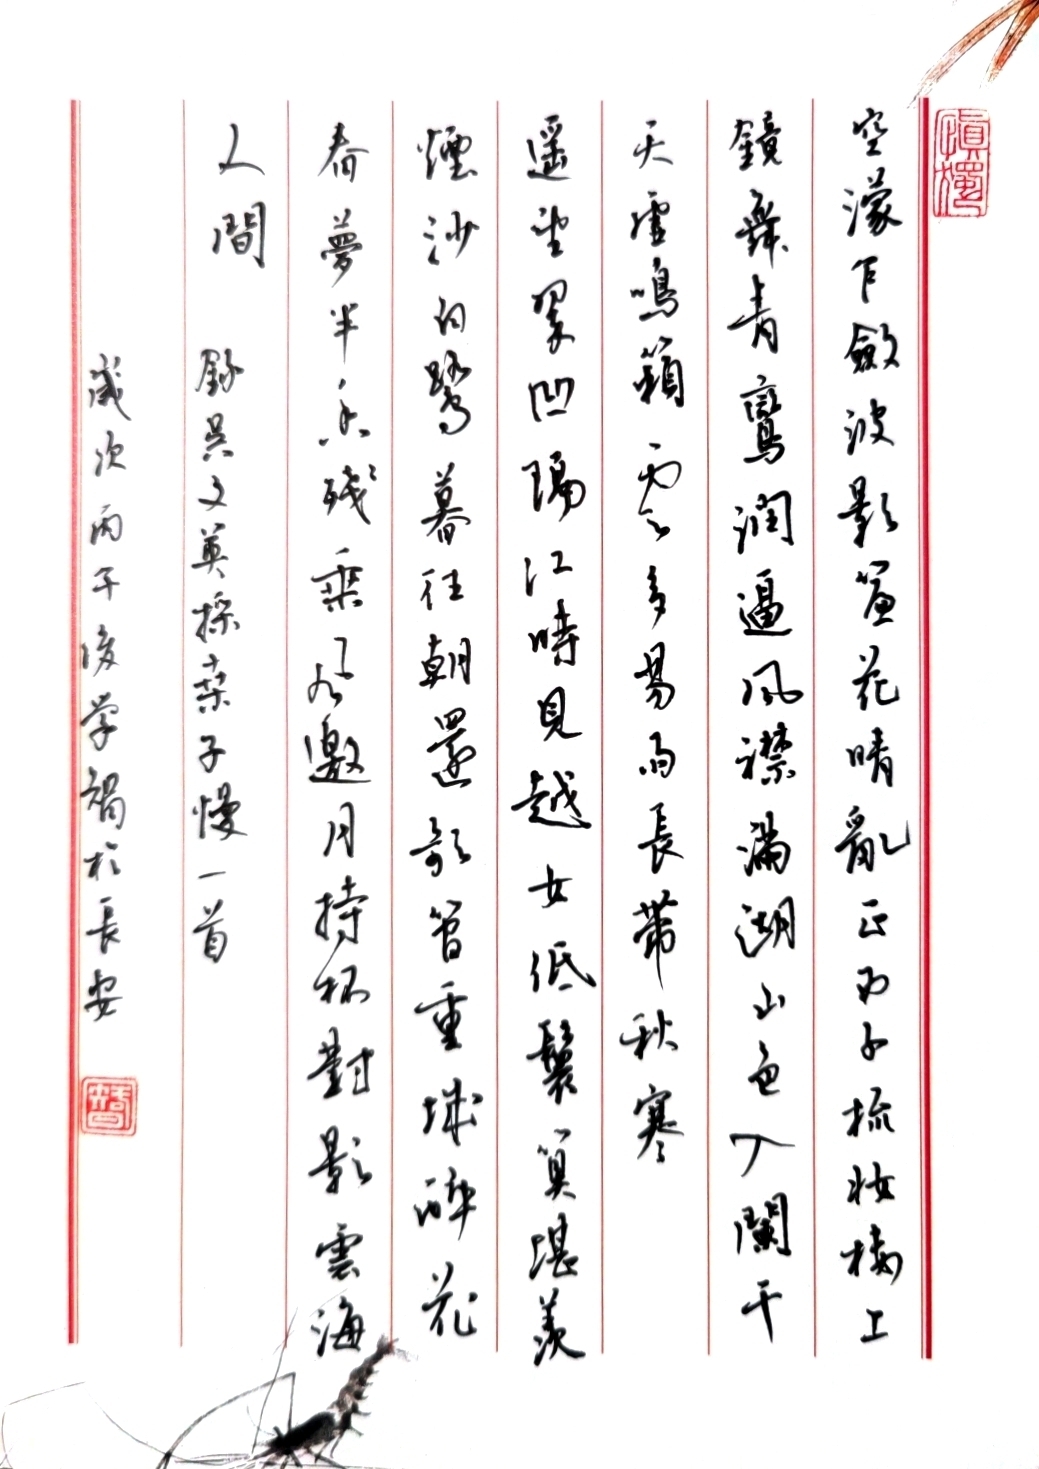 慎獨
空濛乍斂波影簾花晴亂正西子梳妝樓上
鏡舞青鸞潤逼風襟滿湖山色入闌干
天虛鳴籟雲多易雨長帶秋寒
遙望翠凹隔江時見越女低鬟算堪羨
煙沙白鷺暮往朝還歌管重城醉花
春夢半香殘乘風邀月持杯對影雲海
人間 錄吳文英採桑子慢一首
歲次丙午後學於長安